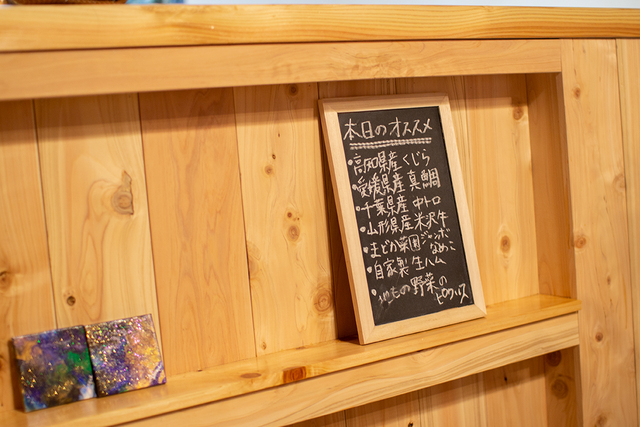 本日のオススメ
・高知県産 くじら
・愛媛県産 真鯛
・千葉県産 中トロ
・山形県産 米沢牛
・まどか菜園ジャンボなめこ
・自家製 生ハム
・地もの野菜の
ピクルス